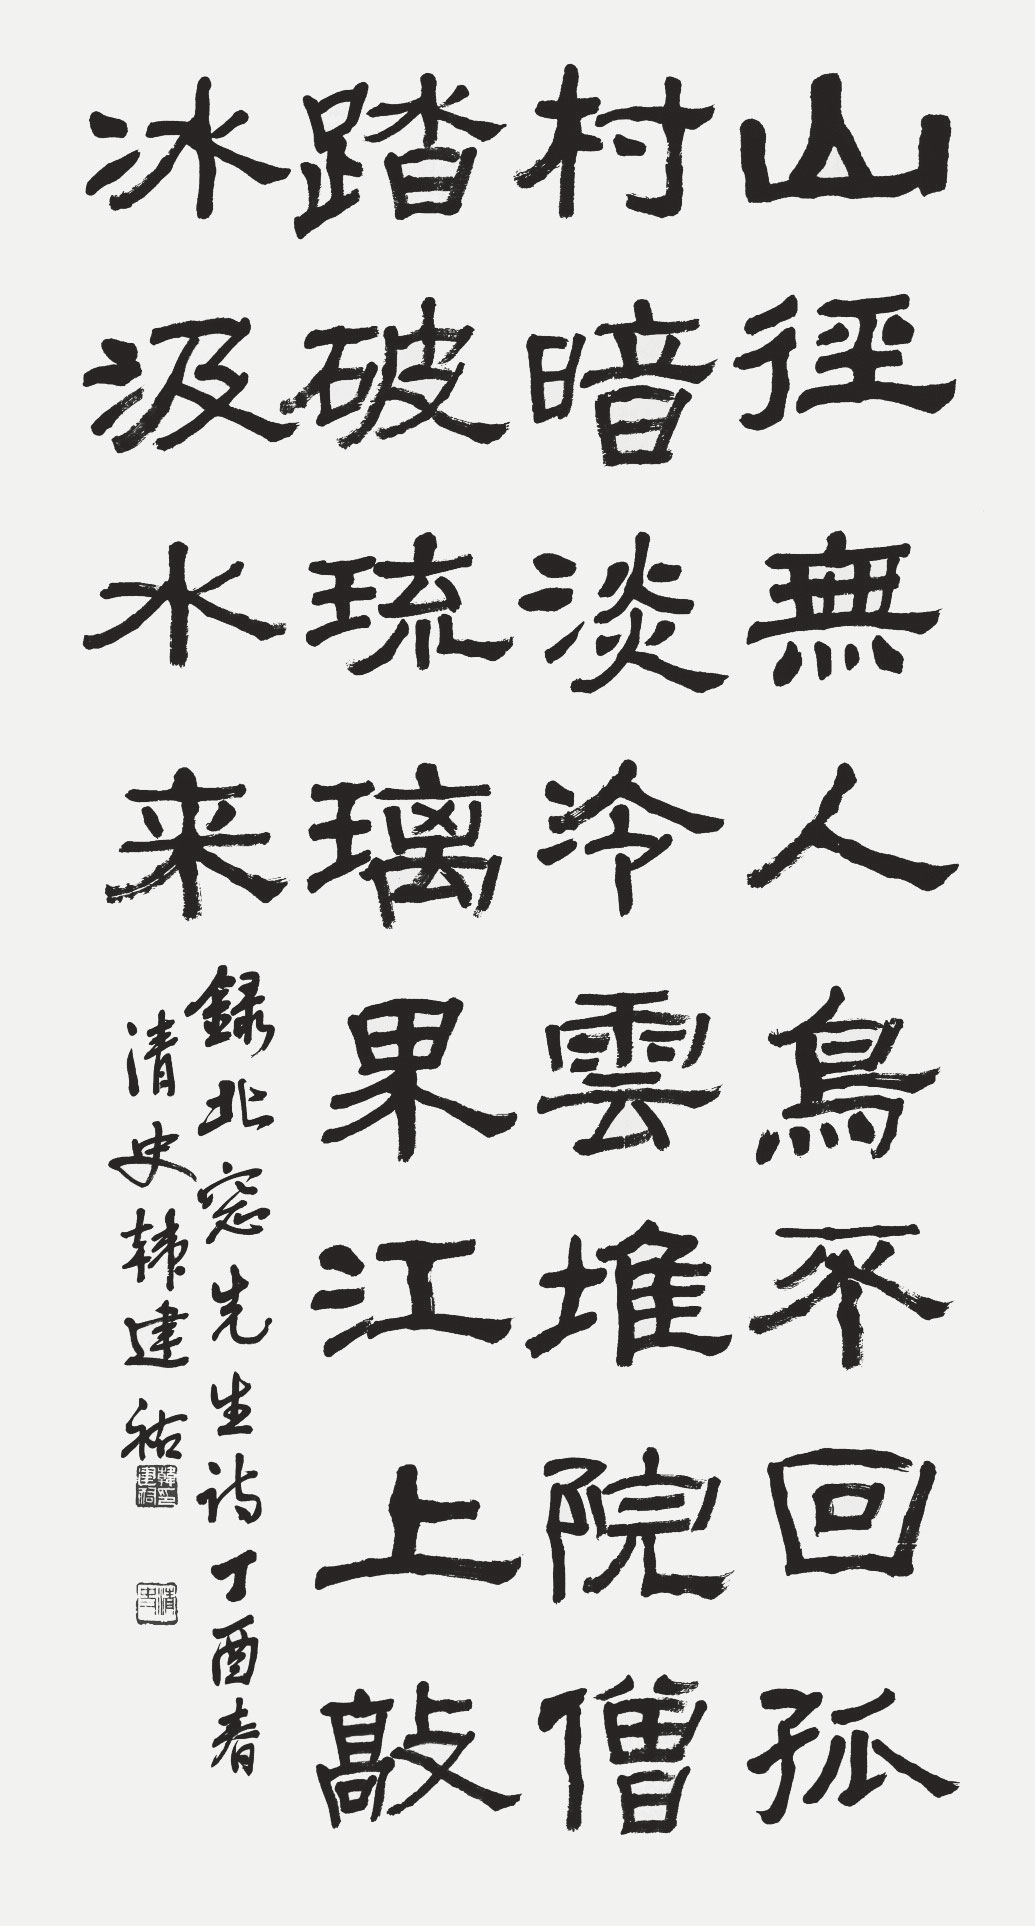 山徑無人鳥不回孤
村暗淡泠雲堆院僧
踏破琉璃界江上敲
冰汲水来
録北窓先生詩丁酉春
清史韓建祐
韓印建祐
清史